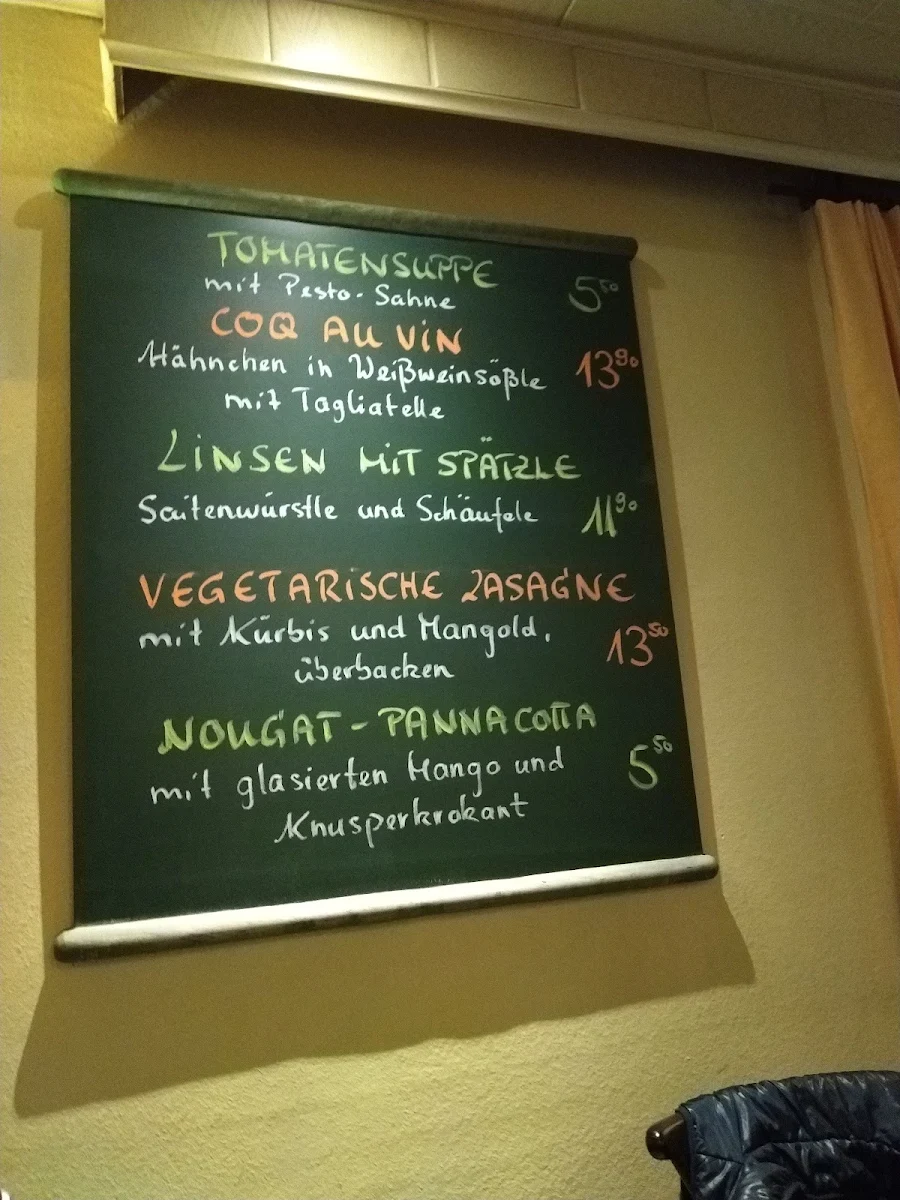 TOMATENSUPPE
mit Pesto-Sahne 5⁵⁰
COQ AU VIN
Hähnchen in Weißweinsößle 13⁹⁰
mit Tagliatelle
LINSEN MIT SPÄTZLE
Saitenwürstle und Schäufele 11⁹⁰
VEGETARISCHE LASAGNE
mit Kürbis und Mangold, 13⁵⁰
überbacken
NOUGAT-PANNACOTTA
mit glasierten Mango und 5⁵⁰
Knusperkrokant